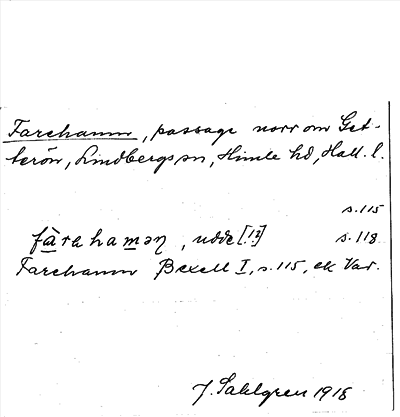 Farehamn, passage norr om Get-
terön, Lindbergs sn, Himle hd, Hall. l.
s. 115
fàrahamən, udde [!?] s. 118
Farehamn Bexell I, s. 115, ek Var.
J. Sahlgren 1918